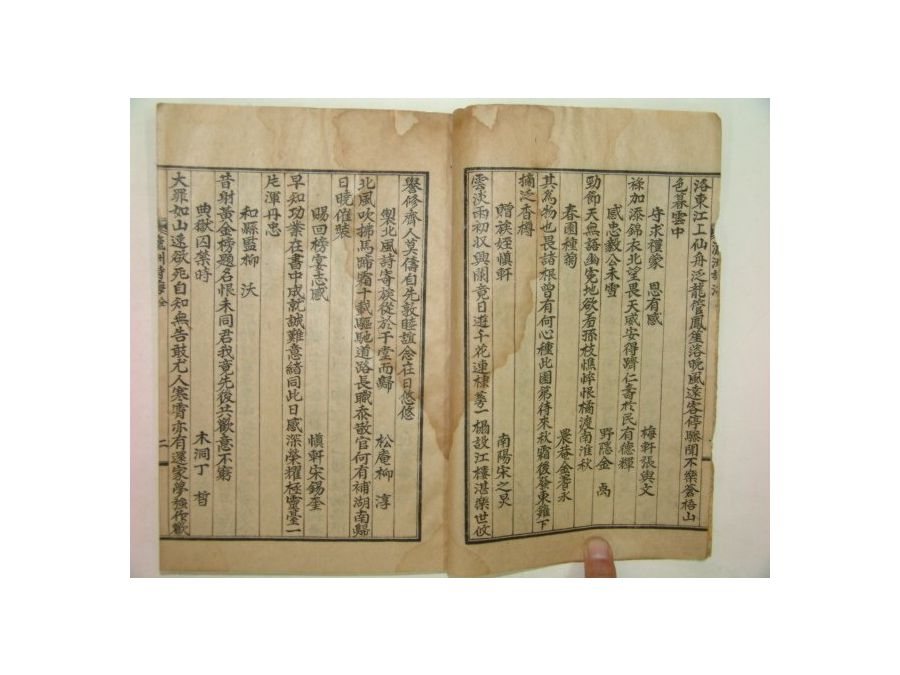 洛東江上仙舟泛龍管鳳笙落晩風遠客停驂聞不樂蒼梧山
色暮雲中
守求禮蒙 恩有感 梅軒張與文
祿加添錦衣北望畏天威安得躋仁壽於民有德輝
感忠毅公未雪 野隱金 禹
勁節天無語幽寃地欲看孫枝憔悴恨橘渡南淮秋
春園種菊 農菴金 永
其爲物也畏諸根曾有何心種此園第待來秋霜後發東籬下
摘泛香樽
贈族姪愼軒 南陽宋之炅
雲淡雨初收興闌竟日遊千花連棟萼一榻設江樓湛樂世攸
譽修齊人莫儔自先敦睦誼念在日悠悠
製北風詩寄族從於于堂而歸 松庵柳 淳
北風吹拂馬啼霜千載驅馳道路長職忝散官何有補湖南歸
日曉催裝
賜回榜宴志感 愼軒宋錫奎
早知功業在書中成就誠難意緖同此日感深榮耀極靈臺一
片渾丹忠
和縣監柳 沃
昔射黃金榜題名恨未同君我竟先後共歡意不窮
典獄囚禁時 木洞丁 哲
大罪如山遠欲死自知無告敢尤人寒宵亦有還家夢強作歡
二